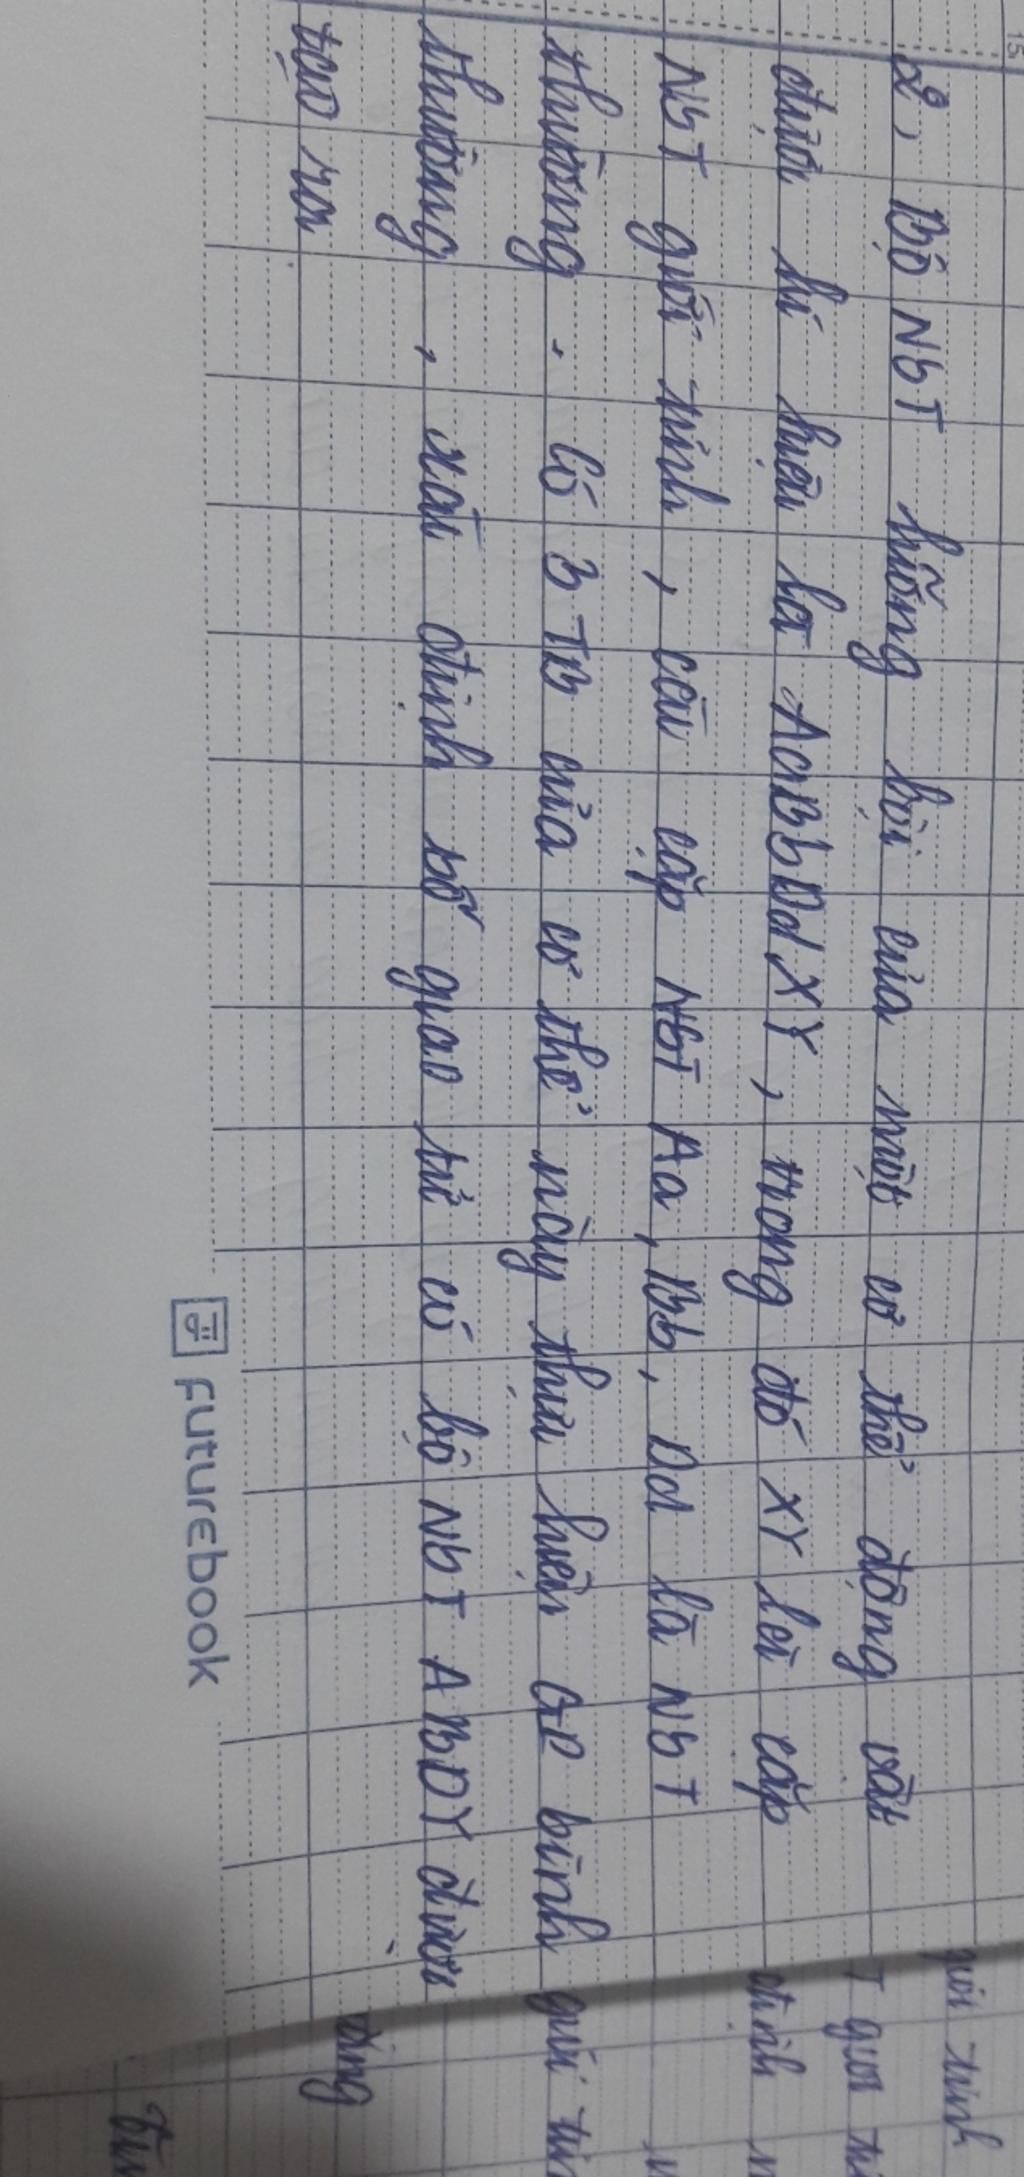 2, Bộ NST lưỡng bội của một cơ thể động vật
được kí hiệu là AaBbDdXY, trong đó XY là cặp
NST giới tính, các cặp NST Aa, Bb, Dd là NST
thường. Có 3 TB của cơ thể này thực hiện GP bình
thường, xác định số giao tử có bộ NST ABDY được
tạo ra
FUTUREBOOK
giới tính
T giới
định
giới